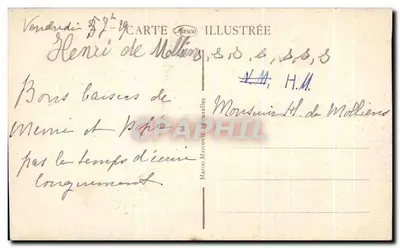 Vendredi
CARTE Marco ILLUSTRÉE
Henri de Molliens
Bons baisers de
Mémé et Pépé
pas le temps d'écrire
longuement
N.M. H.M.
Monsieur H. de Molliens
CARTE-PHIL
Marco Marcovici, Bruxelles